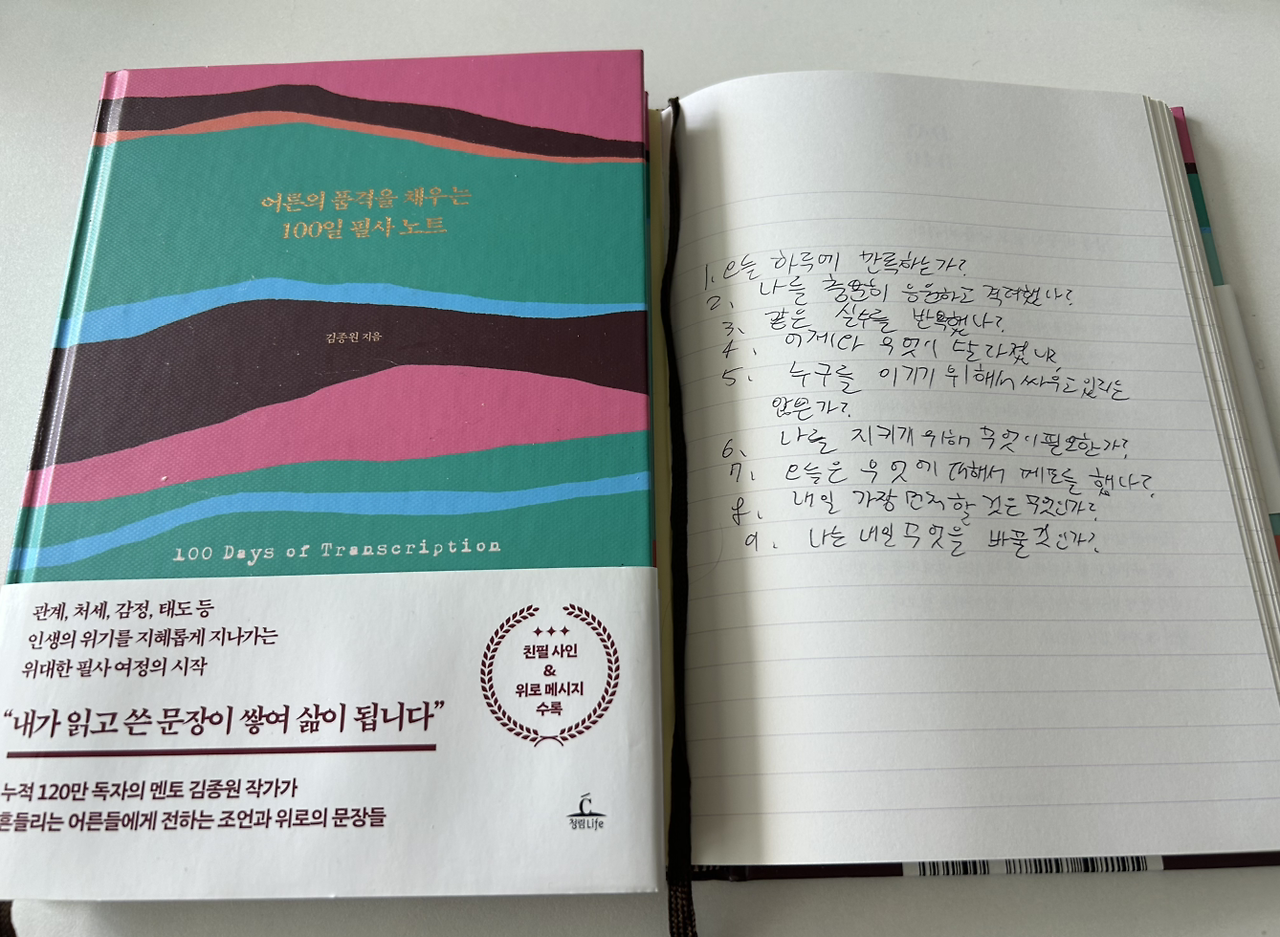 어른의 품격을 채우는
100일 필사 노트
김종원 지음
100 Days of Transcription
관계, 처세, 감정, 태도 등
인생의 위기를 지혜롭게 지나가는
위대한 필사 여정의 시작
“내가 읽고 쓴 문장이 쌓여 삶이 됩니다”
누적 120만 독자의 멘토 김종원 작가가
흔들리는 어른들에게 전하는 조언과 위로의 문장들
친필 사인
&
위로 메시지
수록
청림Life
1. 오늘 하루에 만족하는가?
2. 나를 충분히 응원하고 격려했나?
3. 같은 실수를 반복했나?
4. 어제와 무엇이 달라졌나?
5. 누구를 이기기 위해서 싸우고 있지는
않은가?
6. 나를 지키개 위해 무엇이 필요한가?
7. 오늘은 무엇에 대해서 메모를 했나?
8. 내일 가장 먼저 할 것은 무엇인가?
9. 나는 내일 무엇을 바꿀 것인가?